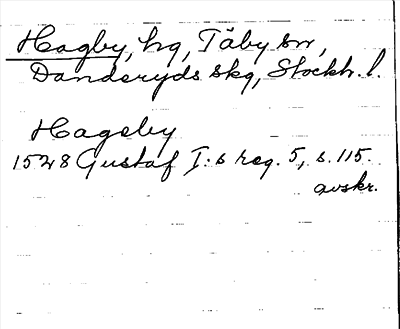 Hagby, hg, Täby sn,
Danderyds skg, Stockh. l.
Hageby
1528 Gustaf I:s reg. 5, s. 115.
avskr.